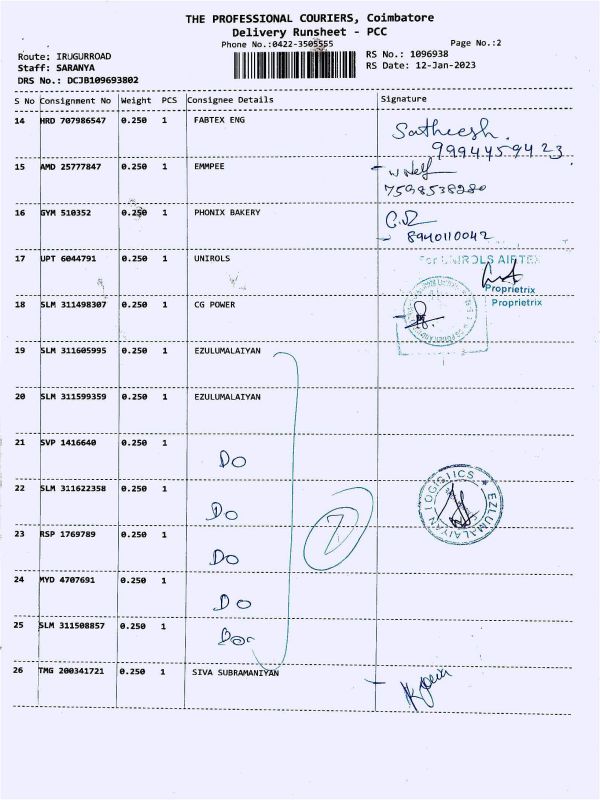 THE PROFESSIONAL COURIERS, Coimbatore
Delivery Runsheet - PCC
Phone No.:0422-3505555
Page No.:2
Route: IRUGURROAD
RS No.: 1096938
Staff: SARANYA
RS Date: 12-Jan-2023
DRS No.: DCJB109693802
S No Consignment No Weight PCS Consignee Details Signature
14 HRD 707986547 0.250 1 FABTEX ENG Satheesh.
9994459423
15 AMD 25777847 0.250 1 EMMPEE
7598538280
16 GYM 510352 0.250 1 PHONIX BAKERY
8940110042
17 UPT 6044791 0.250 1 UNIROLS For UNIROLS AIRTEX
Proprietrix
Proprietrix
18 SLM 311498307 0.250 1 CG POWER
19 SLM 311605995 0.250 1 EZULUMALAIYAN
20 SLM 311599359 0.250 1 EZULUMALAIYAN
21 SVP 1416640 0.250 1 Do
22 SLM 311622358 0.250 1 Do
EZLUMALAIYAN LOGISTICS
23 RSP 1769789 0.250 1 Do
7
24 MYD 4707691 0.250 1 Do
25 SLM 311508857 0.250 1 Do
26 TMG 200341721 0.250 1 SIVA SUBRAMANIYAN